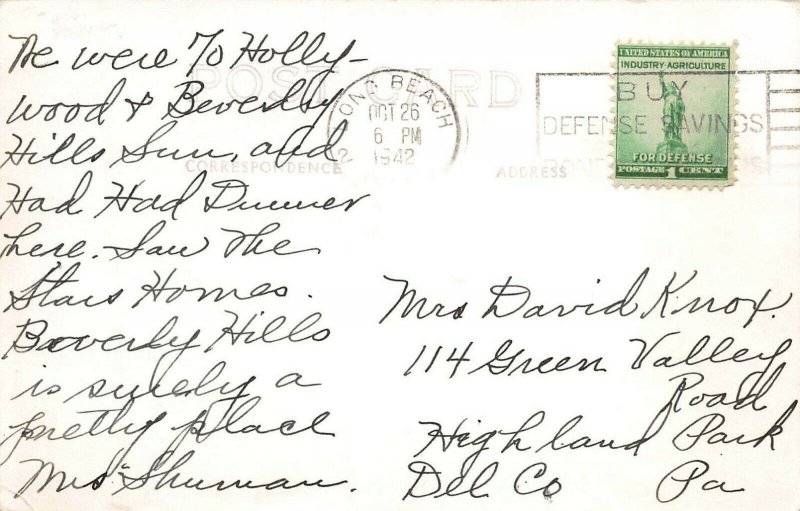 We were To Holly-
wood & Beverly
Hills Sun, and
Had Had Dinner
here. Saw The
Stars Homes.
Beverly Hills
is surely a
pretty place
Mrs Shuman.
POST CARD
CORRESPONDENCE
ADDRESS
LONG BEACH
OCT 26
6 PM
1942
BUY
DEFENSE SAVINGS
UNITED STATES OF AMERICA
INDUSTRY-AGRICULTURE
FOR DEFENSE
POSTAGE 1 CENT
Mrs David Knox.
114 Green Valley
Road
Highland Park
Del Co Pa